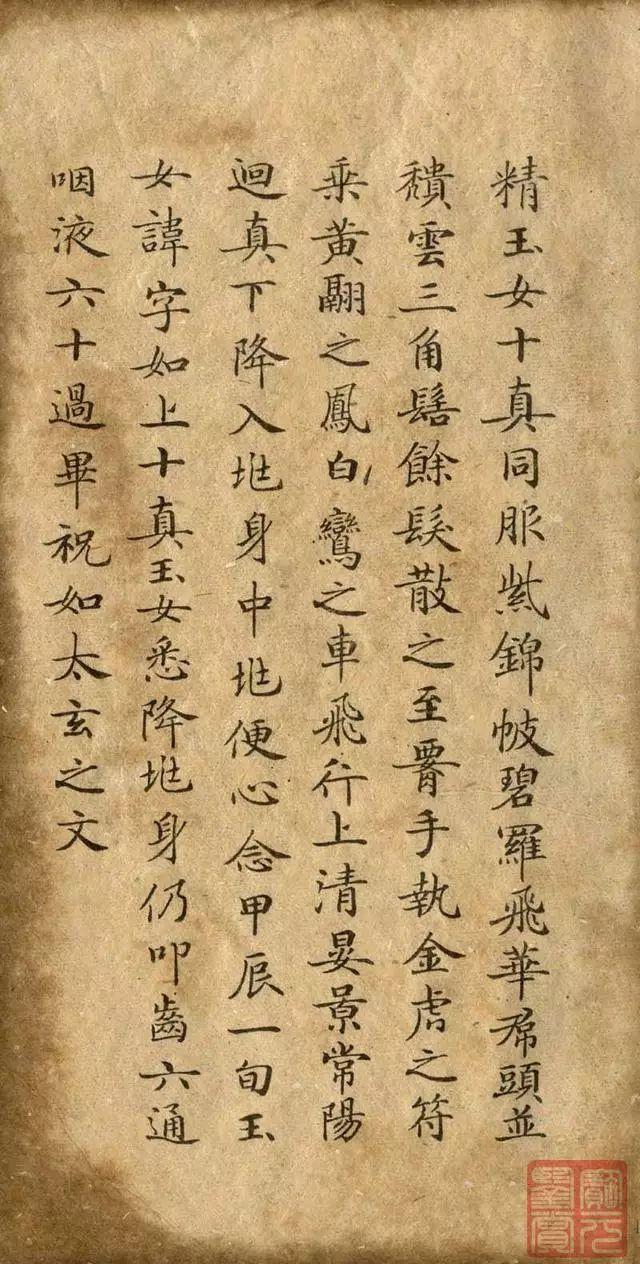 精玉女十真同服紫錦帔碧羅飛華帬頭並
穨雲三角髻餘髮散之至𦝫手執金虎之符
乗黃翮之鳳白鸞之車飛行上清晏景常陽
迴真下降入兆身中兆便心念甲辰一旬玉
女諱字如上十真玉女悉降兆身仍叩齒六通
咽液六十過畢祝如太玄之文